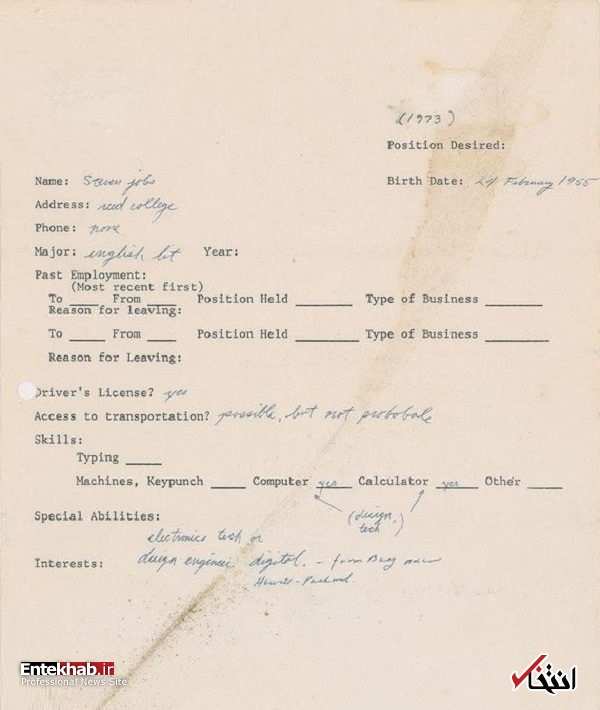 (1973)
Position Desired:
Name: Steven jobs
Birth Date: 24 February 1955
Address: reed college
Phone: none
Major: english lit Year:
Past Employment:
(Most recent first)
To ____ From ____ Position Held ________ Type of Business ________
Reason for leaving:
To ____ From ____ Position Held ________ Type of Business ________
Reason for Leaving:
Driver's License? yes
Access to transportation? possible, but not probobale
Skills:
Typing ____
Machines, Keypunch ____ Computer yes Calculator yes Other ____
(design, tech)
Special Abilities:
electronics tech or
Interests: design engineer. digital. - from Bay
Hewitt-Packard
Entekhab.ir
Professional News Site
انتخاب